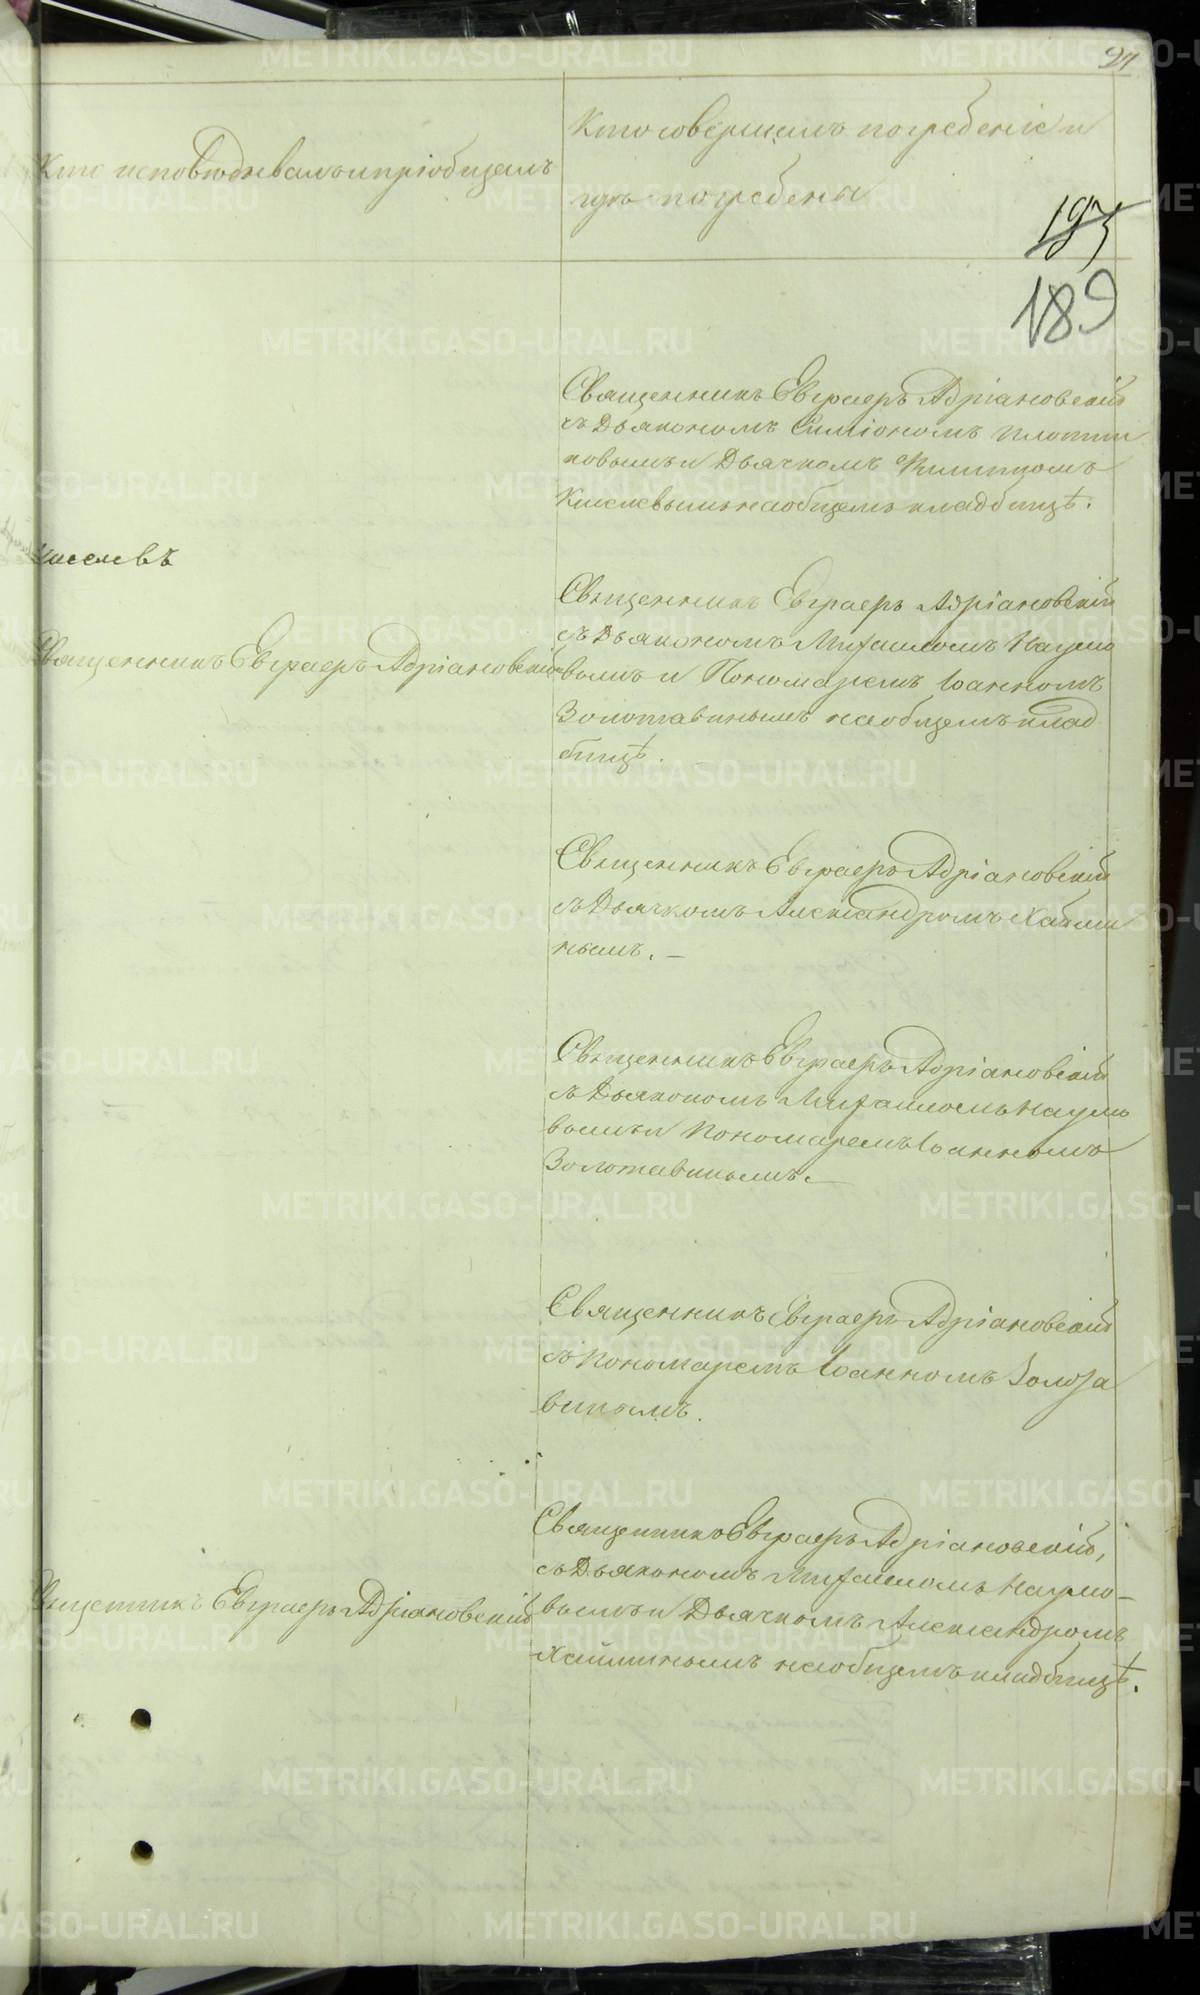 27
Кто исповѣдывалъ и пріобщалъ
Кто совершалъ погребеніе и
гдѣ погребены
193
189
Священникъ Евграфъ Адріановскій
съ Дьякономъ Симіономъ Плотни
ковымъ и Дьячкомъ Филиппомъ
Киселевымъ на общемъ кладбищѣ.
Киселевъ
Священникъ Евграфъ Адріановскій
Священникъ Евграфъ Адріановскій
съ Дьякономъ Михаиломъ Наумо
вымъ и Пономаремъ Іоанномъ
Золотавинымъ на общемъ клад
бищѣ.
Священникъ Евграфъ Адріановскій
съ Дьячкомъ Александромъ
нымъ. —
Священникъ Евграфъ Адріановскій
съ Дьякономъ Михаиломъ Наумо
вымъ и Пономаремъ Іоанномъ
Золотавинымъ. —
Священникъ Евграфъ Адріановскій
съ Пономаремъ Іоанномъ Золота
винымъ.
Священникъ Евграфъ Адріановскій,
съ Дьякономъ Михаиломъ Наумо-
вымъ и Дьячкомъ Александромъ
на общемъ кладбищѣ.
Священникъ Евграфъ Адріановскій
METRIKI.GASO-URAL.RU